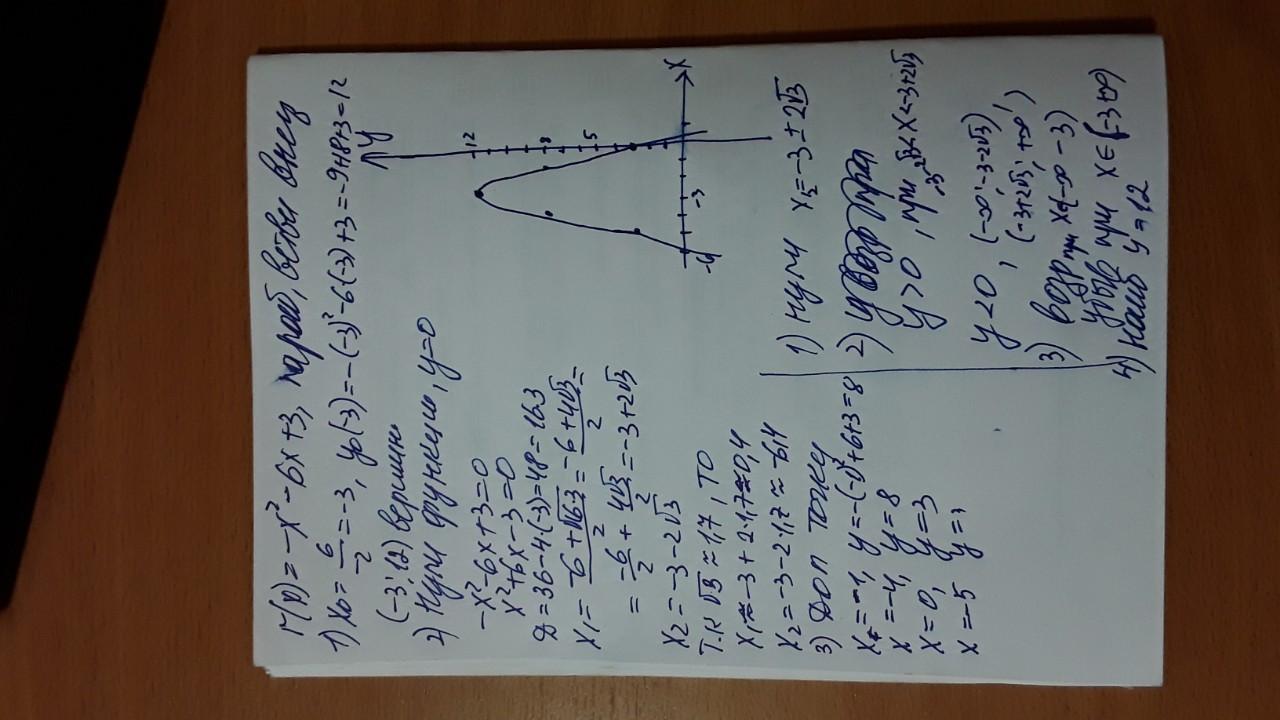 Г(x) = -x² - 6x + 3, параб, ветви вниз
1) x₀ = 6/-2 = -3, y₀(-3) = -(-3)² - 6(-3) + 3 = -9+18+3 = 12
(-3; 12) вершина
2) Нули функции, y=0
-x² - 6x + 3 = 0
x² + 6x - 3 = 0
D = 36 - 4·(-3) = 48 = 16·3
x₁ = (-6 + √16·3)/2 = (-6 + 4√3)/2 =
= -6/2 + 4√3/2 = -3 + 2√3
x₂ = -3 - 2√3
Т.к √3 ≈ 1,7, то
x₁ ≈ -3 + 2·1,7 ≈ 0,4
x₂ = -3 - 2·1,7 ≈ -6,4
3) Доп точки
x = -1, y = -(-1)² + 6 + 3 = 8
x = -4, y = 8
x = 0, y = 3
x = -5 y = 
y
12
8
5
x
-3
1) нули x₁,₂ = -3 ± 2√3
2)
y > 0, при -3-2√3 < x < -3+2√3
y < 0, (-∞; -3-2√3)
(-3+2√3; +∞)
3) возр при x (-∞ -3)
убыв при x ∈ (-3 +∞)
4) наиб y = 12